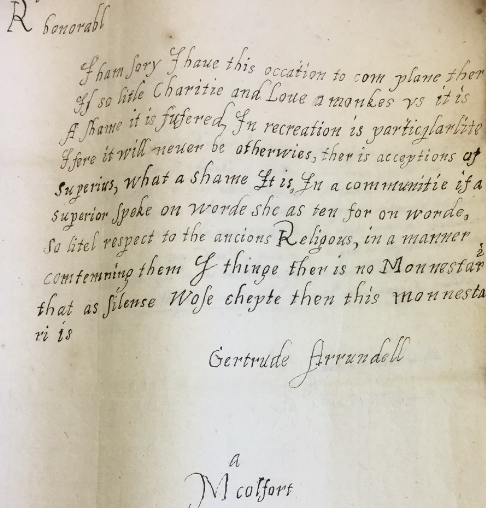 R
honorabl
I ham sory I haue this occation to com plane ther
If so litle Charitie and Loue a monkes vs it is
A shame it is sufered, In recreation is particularlite
I fere it will neuer be otherwies, ther is acceptions of
Superius, what a shame It is, In a communitie if a
Superior speke on worde she as ten for on worde,
so litel respect to the ancions Religous, in a manner
contemning them I thinge ther is no Monnestari
that as silense Wose chepte then this monnesta
ri is
Gertrude Arrundell
a
M colfort